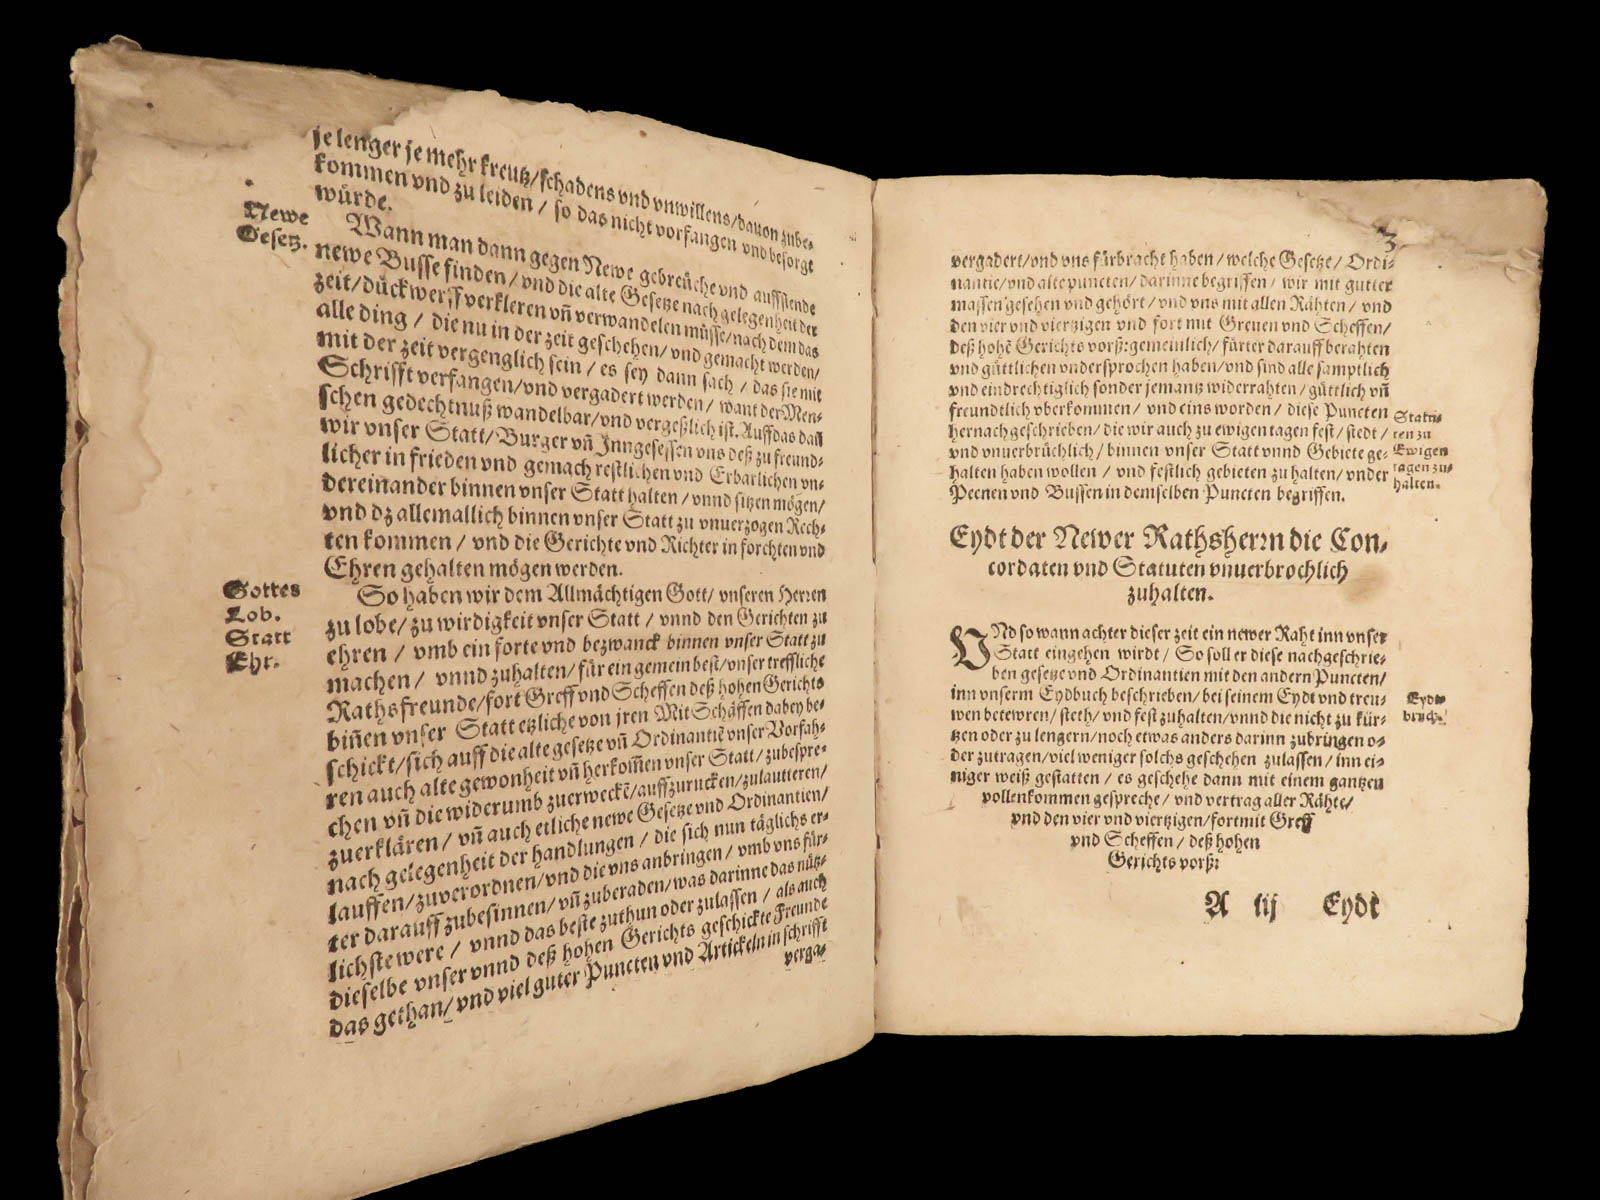 je lenger je mehr kreutz/schadens vnd vnwillens/dauon zube-
kommen vnd zu leiden / so das nicht vorfangen vnd besorgt
würde.
Newe
Gesetz.
Wann man dann gegen Newe gebreüche vnd auffstende
newe Busse finden / vnd die alte Gesetze nach gelegenheit der
zeit/dückwerff verkleren vñ verwandelen müsse/nach dem das
alle ding / die nu in der zeit geschehen/vnd gemacht werden/
mit der zeit vergenglich sein / es sey dann sach / das sie mit
Schrifft verfangen/vnd vergadert werden / want der Men-
schen gedechtnuß wandelbar/vnd vergeßlich ist. Auff das dañ
wir vnser Statt/Burger vñ Inngesessen vns deß zu freund-
licher in frieden vnd gemach restlichen vnd Erbarlichen vn-
dereinander binnen vnser Statt halten / vnnd sitzen mögen/
vnd dz allemallich binnen vnser Statt zu vnuerzogen Rech-
ten kommen / vnd die Gerichte vnd Richter in forchten vnd
Ehren gehalten mögen werden.
Gottes
Lob.
Statt
Ehr.
So haben wir dem Allmächtigen Gott/ vnseren Herren
zu lobe/ zu wirdigkeit vnser Statt / vnnd den Gerichten zu
ehren / vmb ein forte vnd bezwanck binnen vnser Statt zu
machen / vnnd zuhalten/ für ein gemein best/vnser treffliche
Rathsfreunde/fort Greff vnd Scheffen deß hohen Gerichts
biñen vnser Statt etzliche von jren Mit Schäffen dabey be-
schickt/sich auff die alte gesetze vñ Ordinantiẽ vnser Vorfah-
ren auch alte gewonheit vñ herkom̃en vnser Statt / zubespre-
chen vñ die widerumb zuerweckẽ/auffzurucken/zulautteren/
zuerklären / vñ auch etliche newe Gesetze vnd Ordinantien/
nach gelegenheit der handlungen / die sich nun täglichs er-
lauffen/zuverordnen/vnd die vns anbringen / vmb vns für-
ter darauff zubesinnen/ vñ zuberaden/was darinne das nütz-
lichste were / vnnd das beste zuthun oder zulassen / als auch
dieselbe vnser vnnd deß hohen Gerichts geschickte Freunde
das gethan/ vnd viel guter Puncten vnd Artickeln in schrifft
verga-
3
vergadert/vnd vns fürbracht haben/ welche Gesetze/ Ordi-
nantie/vnd alte puncten/ darinne begriffen / wir mit gutter
massen gesehen vnd gehört/ vnd vns mit allen Rähten / vnd
den vier vnd viertzigen vnd fort mit Greuen vnd Scheffen/
deß hohẽ Gerichts vorß: gemeinlich/ fürter darauff berahten
vnd güttlichen vndersprochen haben/vnd sind alle samptlich
vnd eindrechtiglich sonder jemantz widerrahten/ güttlich vñ
freundtlich vberkommen / vnd eins worden / diese Puncten
hernachgeschrieben/ die wir auch zu ewigen tagen fest/ stedt /
vnd vnuerbrüchlich/ binnen vnser Statt vnnd Gebiete ge-
halten haben wollen / vnd festlich gebieten zu halten/ vnder
Peenen vnd Bussen in demselben Puncten begriffen.
Statu-
ten zu
Ewigen
tagen zu-
halten.
Eydt der Newer Rathsherrn die Con-
cordaten vnd Statuten vnuerbrochlich
zuhalten.
VNd so wann achter dieser zeit ein newer Raht inn vnser
Statt eingehen wirdt / So soll er diese nachgeschrie-
ben gesetze vnd Ordinantien mit den andern Puncten/
inn vnserm Eydbuch beschrieben/ bei seinem Eydt vnd treu-
wen betewren/ steth/ vnd fest zuhalten/vnnd die nicht zu kür-
tzen oder zu lengern/ noch etwas anders darinn zubringen o-
der zutragen/viel weniger solchs geschehen zulassen/ inn ei-
niger weiß gestatten / es geschehe dann mit einem gantzen
vollenkommen gespreche/ vnd vertrag aller Rähte/
vnd den vier vnd viertzigen/fort mit Greff
vnd Scheffen / deß hohen
Gerichts vorß:
Eydt
bruch.
A iij Eydt